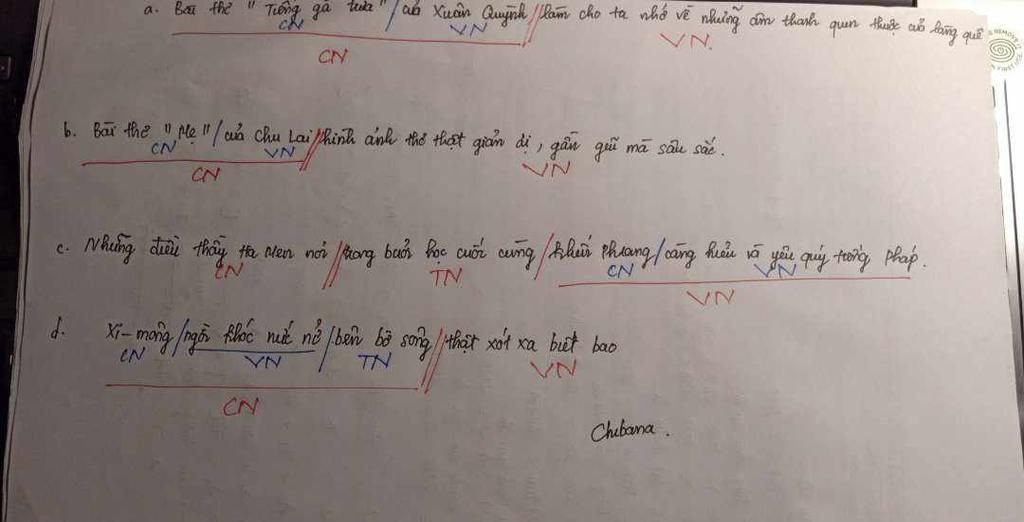 a. Bài thơ " Tiếng gà trưa" / của Xuân Quỳnh // làm cho ta nhớ về những âm thanh quen thuộc của làng quê
CN VN VN.
CN
b. Bài thơ " Mẹ " / của Chu Lai // hình ảnh thơ thật giản dị, gần gũi mà sâu sắc.
CN VN VN
CN
c. Những điều thầy Ha Men nói // trong buổi học cuối cùng / khiến Phrang / càng hiểu và yêu quý tiếng Pháp.
CN TN CN VN
VN
d. Xi-mông / ngồi khóc nức nở / bên bờ sông // thật xót xa biết bao
CN VN TN VN
CN
Chibana.